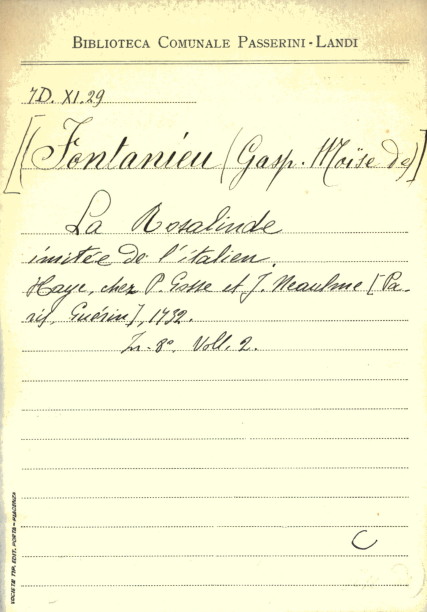 BIBLIOTECA COMUNALE PASSERINI-LANDI
7D. XI.29
[(Fontanieu (Gasp. Moïse de)]
La Rosalinde
imitée de l'italien.
Haye, chez P. Gosse et J. Neaulme [Pa-
ris, Guérin], 1732.
In-8° Voll. 2.
C
SOCIETÀ TIP. EDIT. PORTA-PIACENZA